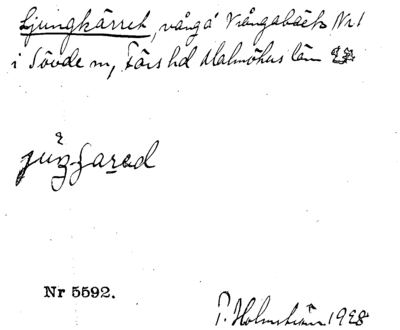 Ljungkärret, vång å Vrångabäck Nr 1
i Sövde sn, Färs hd Malmöhus län
Nr 5592.
P. Holmström 1928